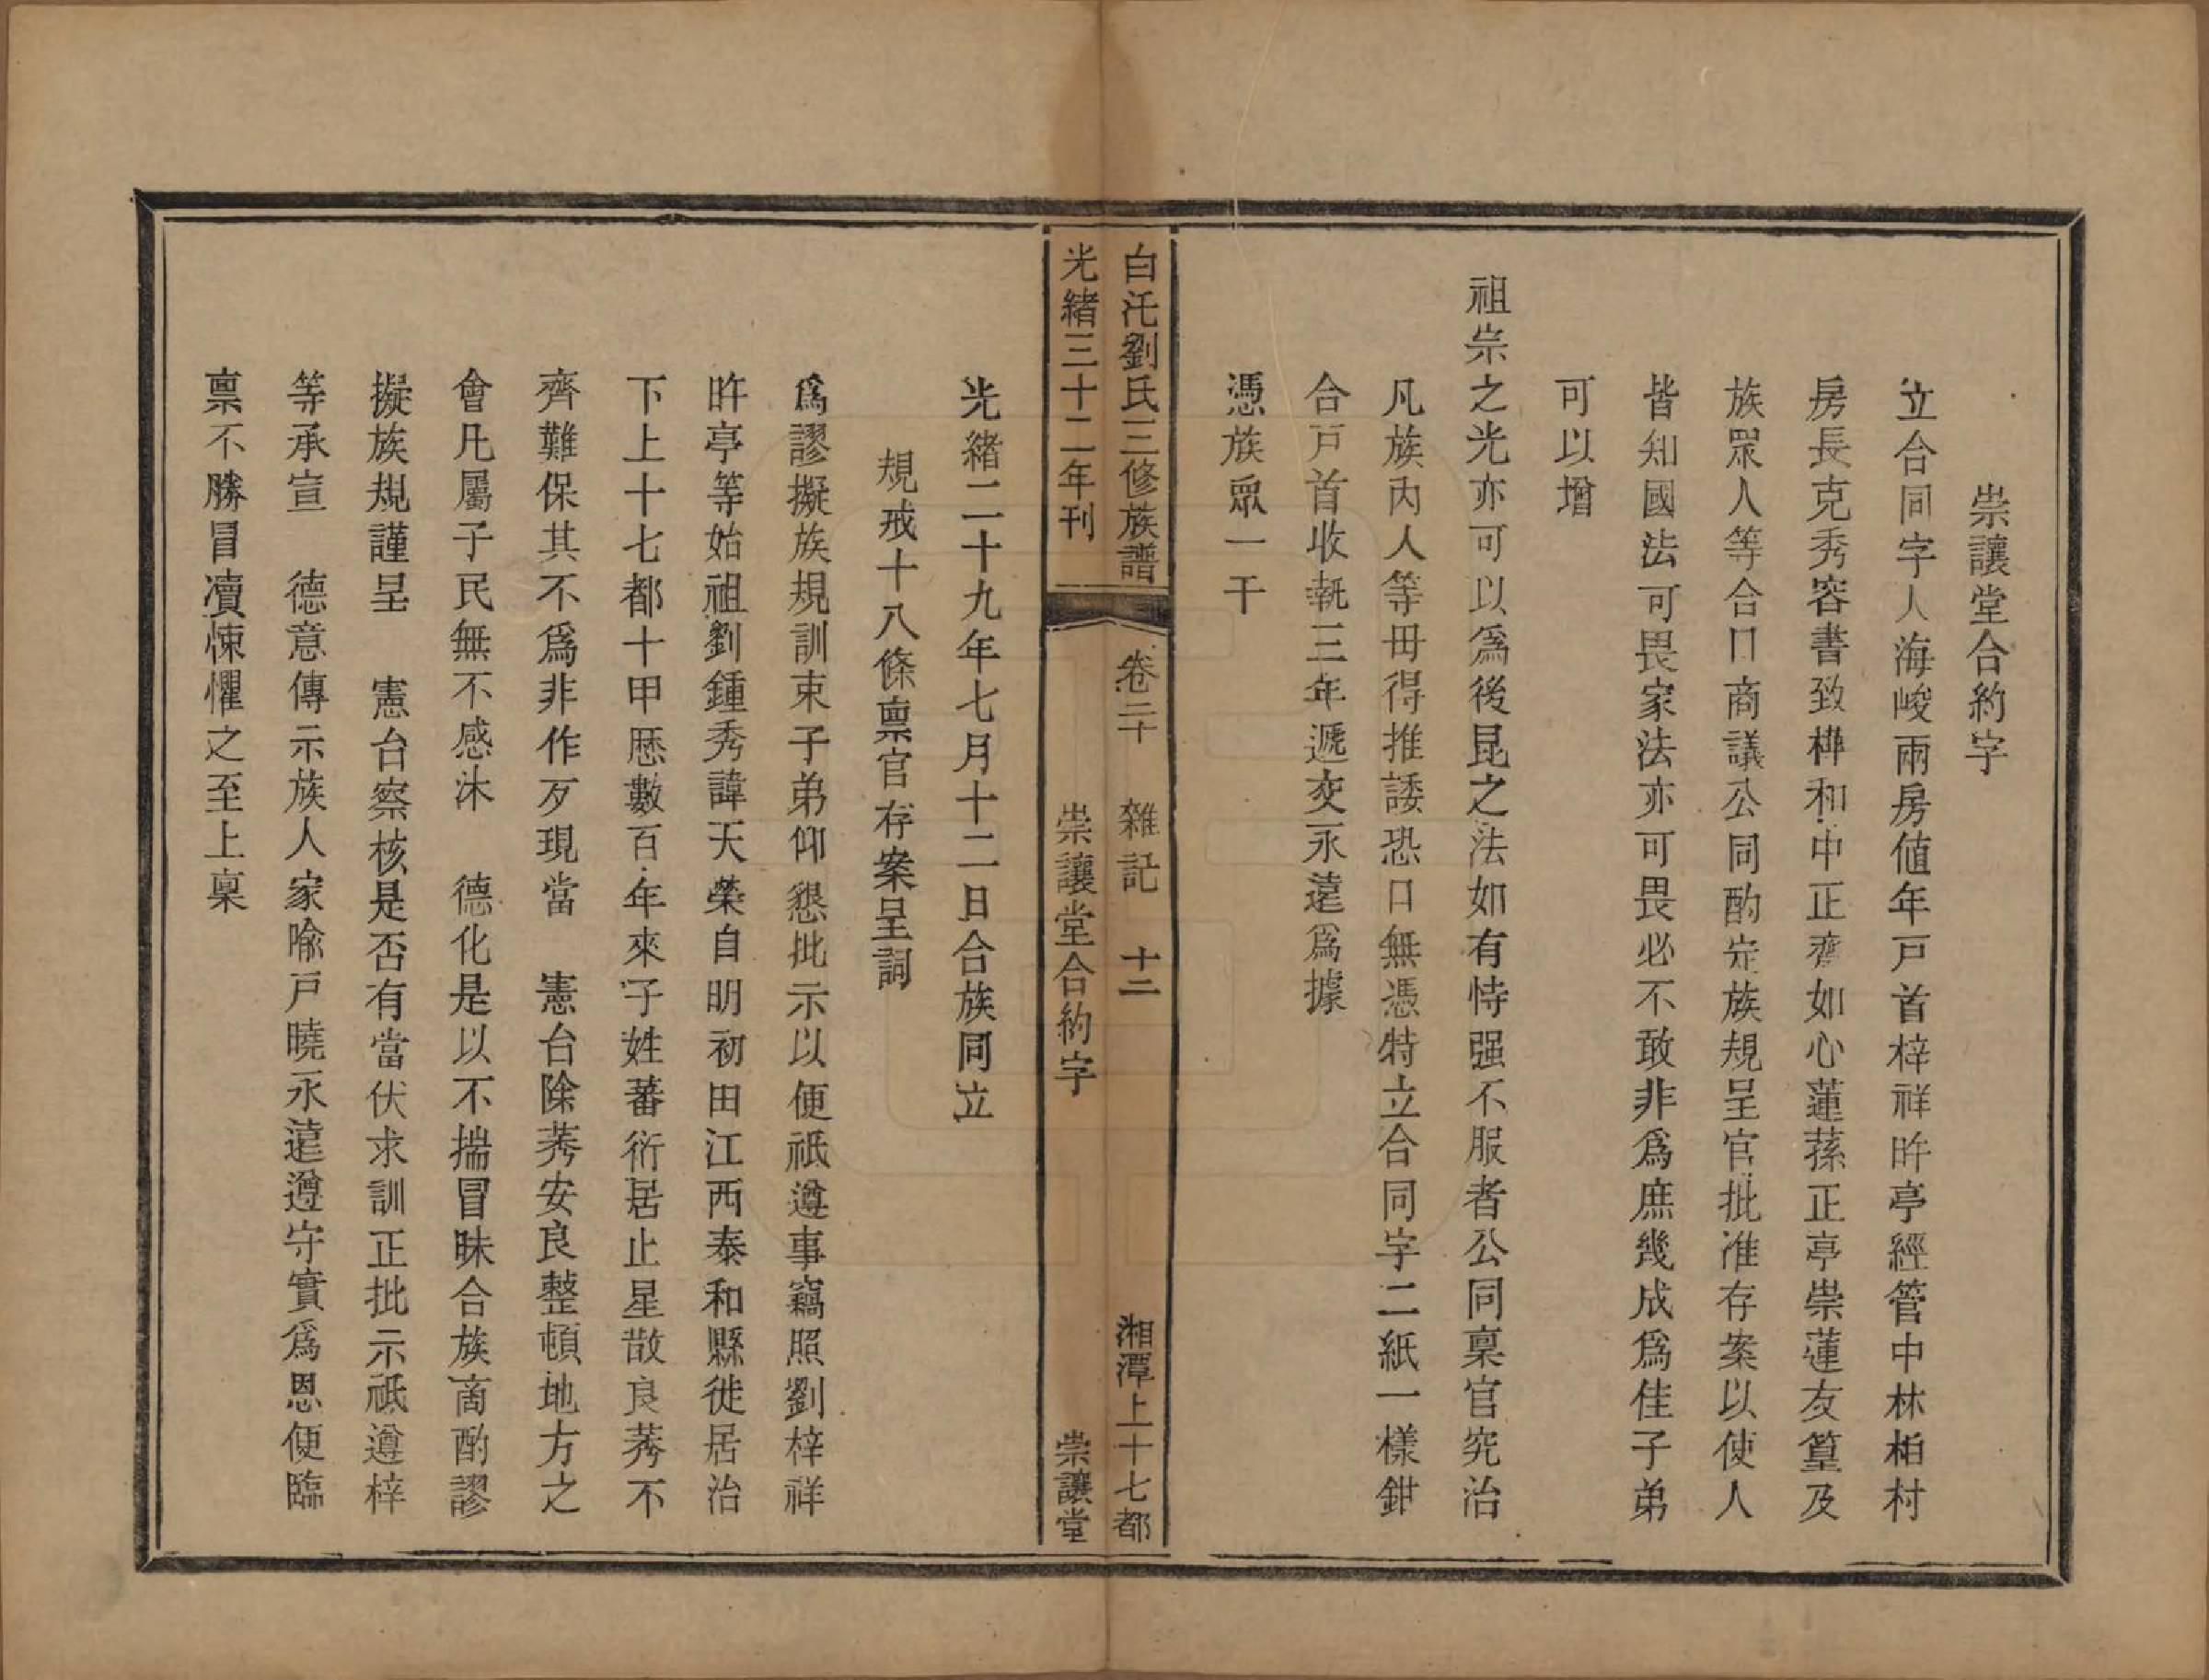 崇讓堂合約字
立合同字人海峻兩房值年戸首梓祥旿亭經管中林柏村
房長克秀容書致樺和中正齊如心蓮蓀正亭崇蓮友篁及
族眾人等合口商議公同酌定族規呈官批准存案以使人
皆知國法可畏家法亦可畏必不敢非爲庶幾成爲佳子弟
可以增
祖宗之光亦可以爲後昆之法如有恃强不服者公同稟官究治
凡族內人等毋得推諉恐口無憑特立合同字二紙一樣鉗
合戸首收執三年遞交永遠爲據
憑族眾一干
白汑劉氏三修族譜 卷二十 雜記 十二 湘潭上十七都
光緒三十二年刊 崇讓堂合約字 崇讓堂
光緒二十九年七月十二日合族同立
規戒十八條稟官存案呈詞
爲謬擬族規訓束子弟仰懇批示以便祇遵事竊照劉梓祥
旿亭等始祖劉鍾秀諱天榮自明初由江西泰和縣徙居治
下上十七都十甲歷數百年來子姓蕃衍居止星散良莠不
齊難保其不爲非作歹現當 憲台除莠安良整頓地方之
會凡屬子民無不感沐 德化是以不揣冒昧合族商酌謬
擬族規謹呈 憲台察核是否有當伏求訓正批示祇遵梓
等承宣 德意傳示族人家喻戸曉永遠遵守實爲恩便臨
稟不勝冒瀆悚懼之至上稟